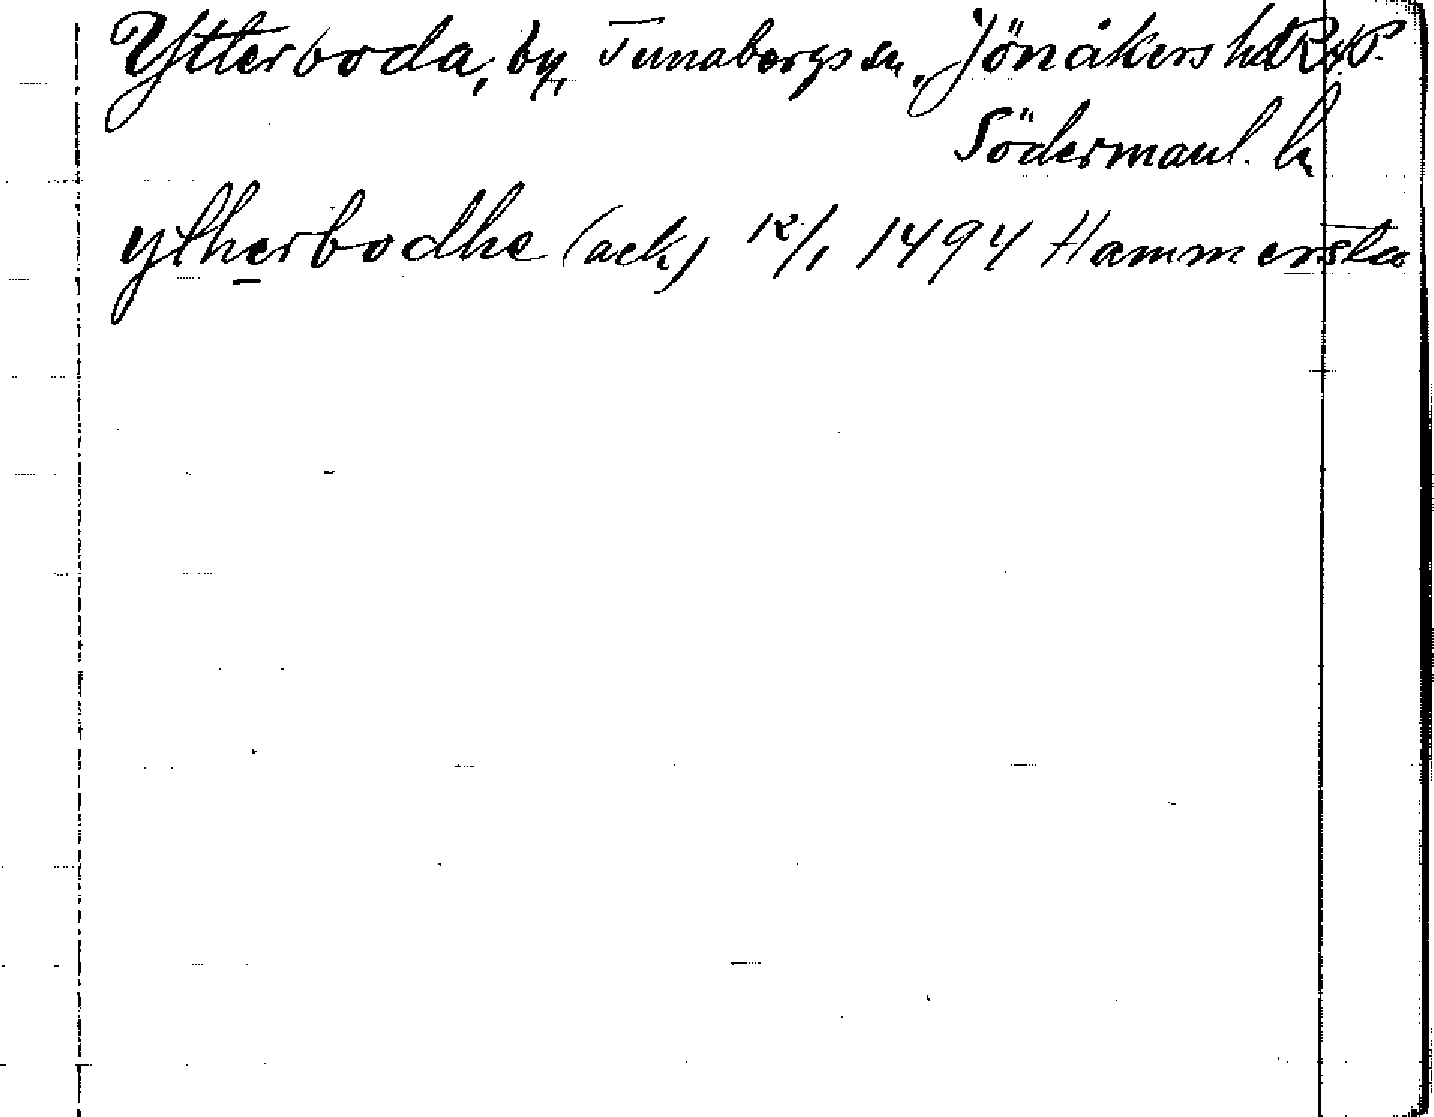 Ytterboda, by, Tunabergs sn, Jönåkers hd R.A.P.
Södermanl. ln
ytherbodhe (ack) 12/1 1494 Hammersta